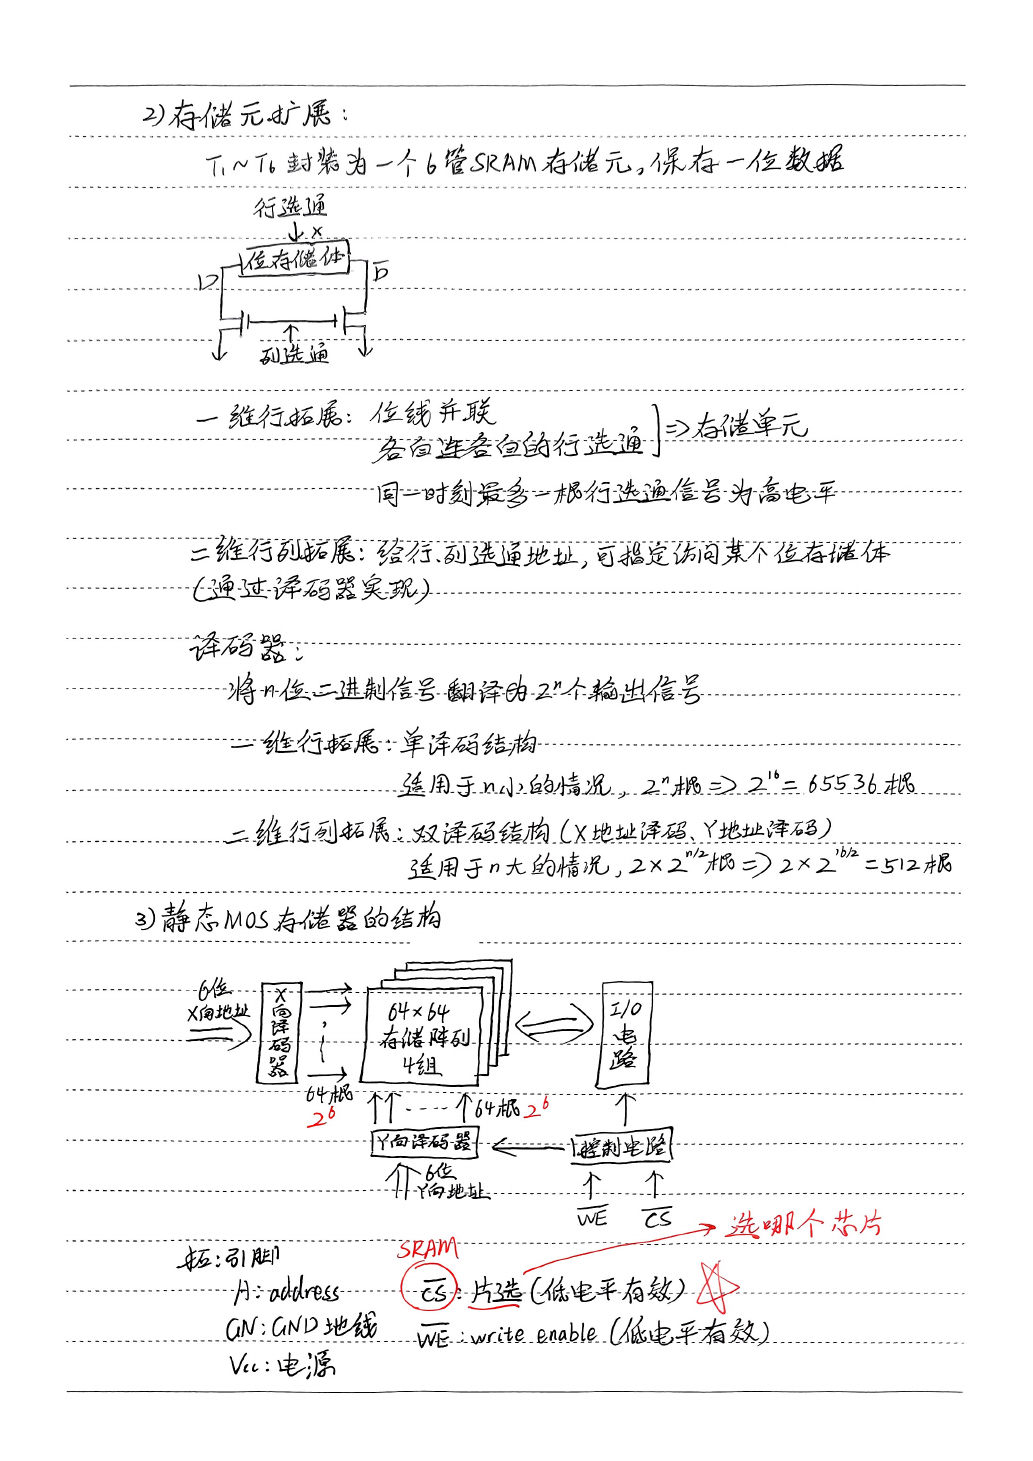 2)存储元扩展:
T₁~T₆ 封装为一个6管SRAM存储元,保存一位数据
行选通
X
位存储体
D
D̅
列选通
一维行拓展: 位线并联
各自连各自的行选通
⇒存储单元
同一时刻最多一根行选通信号为高电平
二维行列拓展: 给行.列选通地址,可指定访问某个位存储体
(通过译码器实现)
译码器:
将n位二进制信号翻译为2ⁿ个输出信号
一维行拓展: 单译码结构
适用于n小的情况, 2ⁿ根 ⇒ 2¹⁶ = 65536根
二维行列拓展: 双译码结构(X地址译码、Y地址译码)
适用于n大的情况, 2×2^(n/2)根 ⇒ 2×2^(16/2) = 512根
3)静态MOS存储器的结构
6位
X向地址
X向译码器
64根
2⁶
64×64
存储阵列
4组
I/O电路
64根 2⁶
Y向译码器
控制电路
6位
Y向地址
W̅E̅
C̅S̅
选哪个芯片
拓:引脚
SRAM
A: address
C̅S̅: 片选(低电平有效)
GN: GND 地线
W̅E̅: write enable (低电平有效)
Vcc: 电源